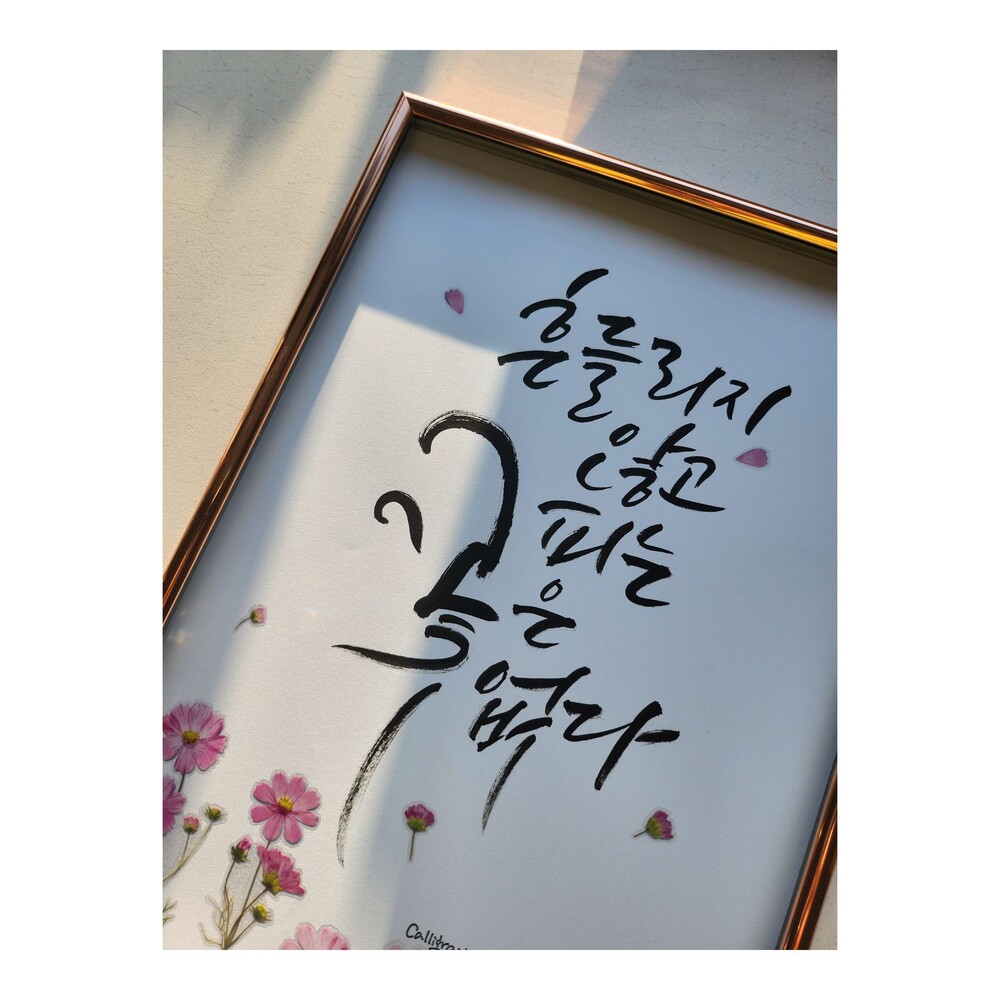 흔들리지
않고
피는
꽃은
없다